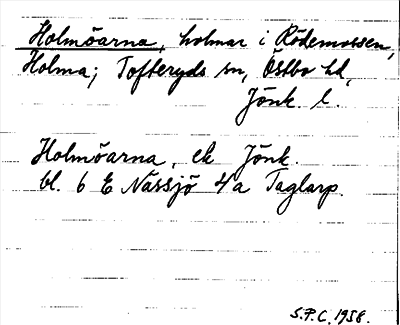 Holmöarna, holmar i Rödemossen,
Holma; Tofteryds sn, Östbo hd,
Jönk. l.
Holmöarna, ek Jönk.
bl. 6 E Nässjö 4a Taglarp.
S.P.C. 1958.